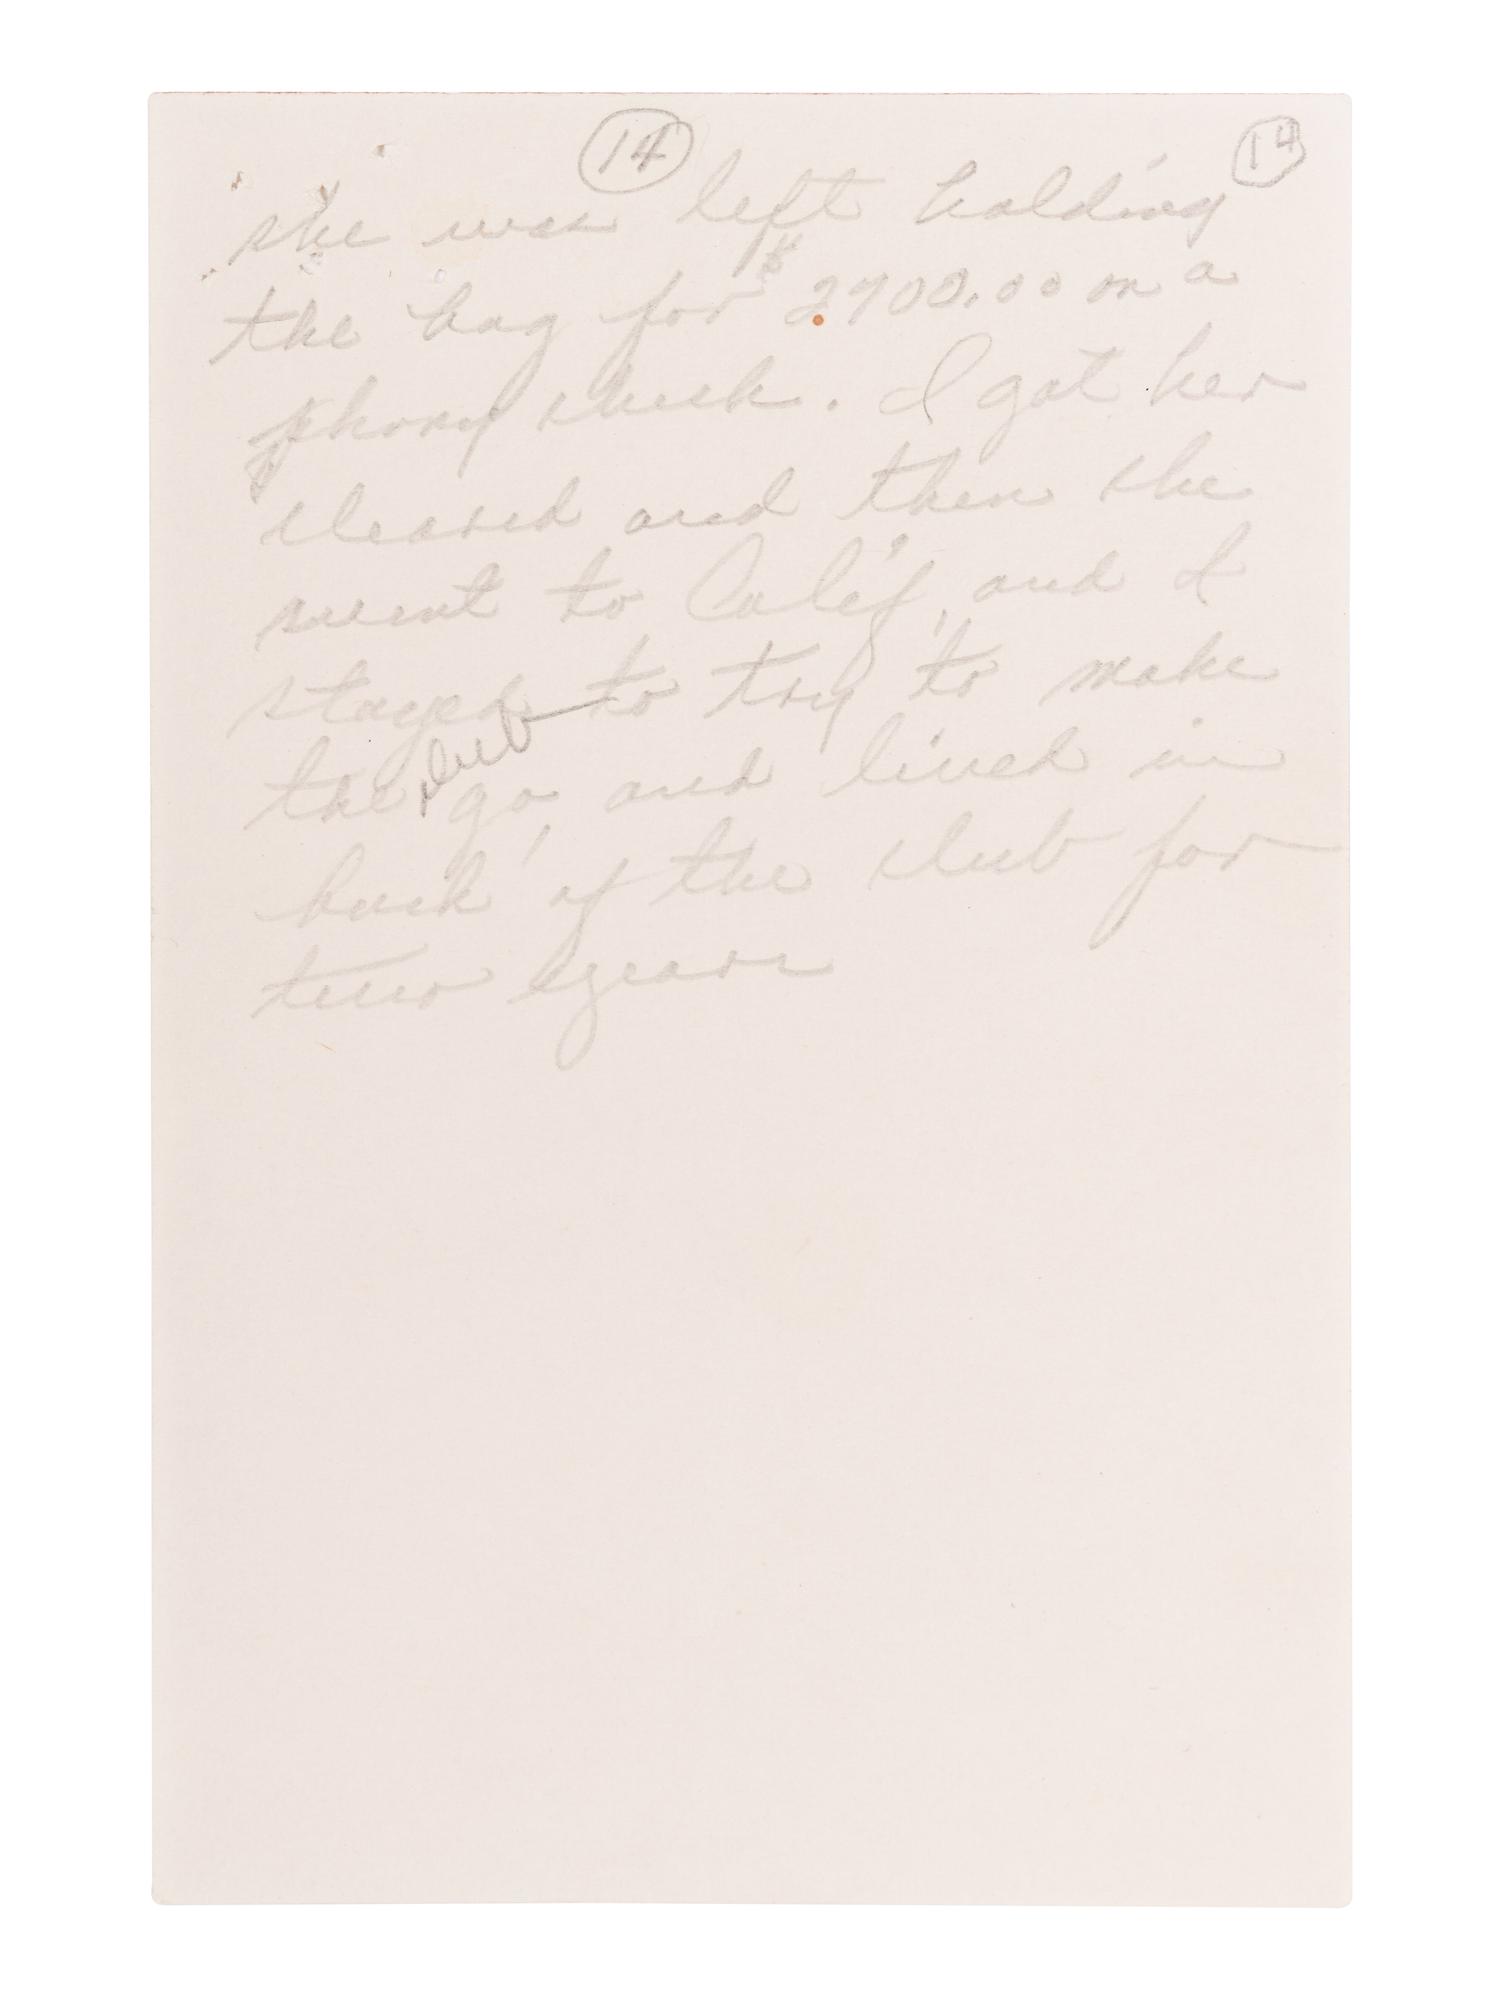 14 14
she was left holding
the bag for $2700.00 on a
phony check. I got her
cleared and then she
went to Calif, and I
stayed to try to make
the club go, and lived in
back of the club for
two years